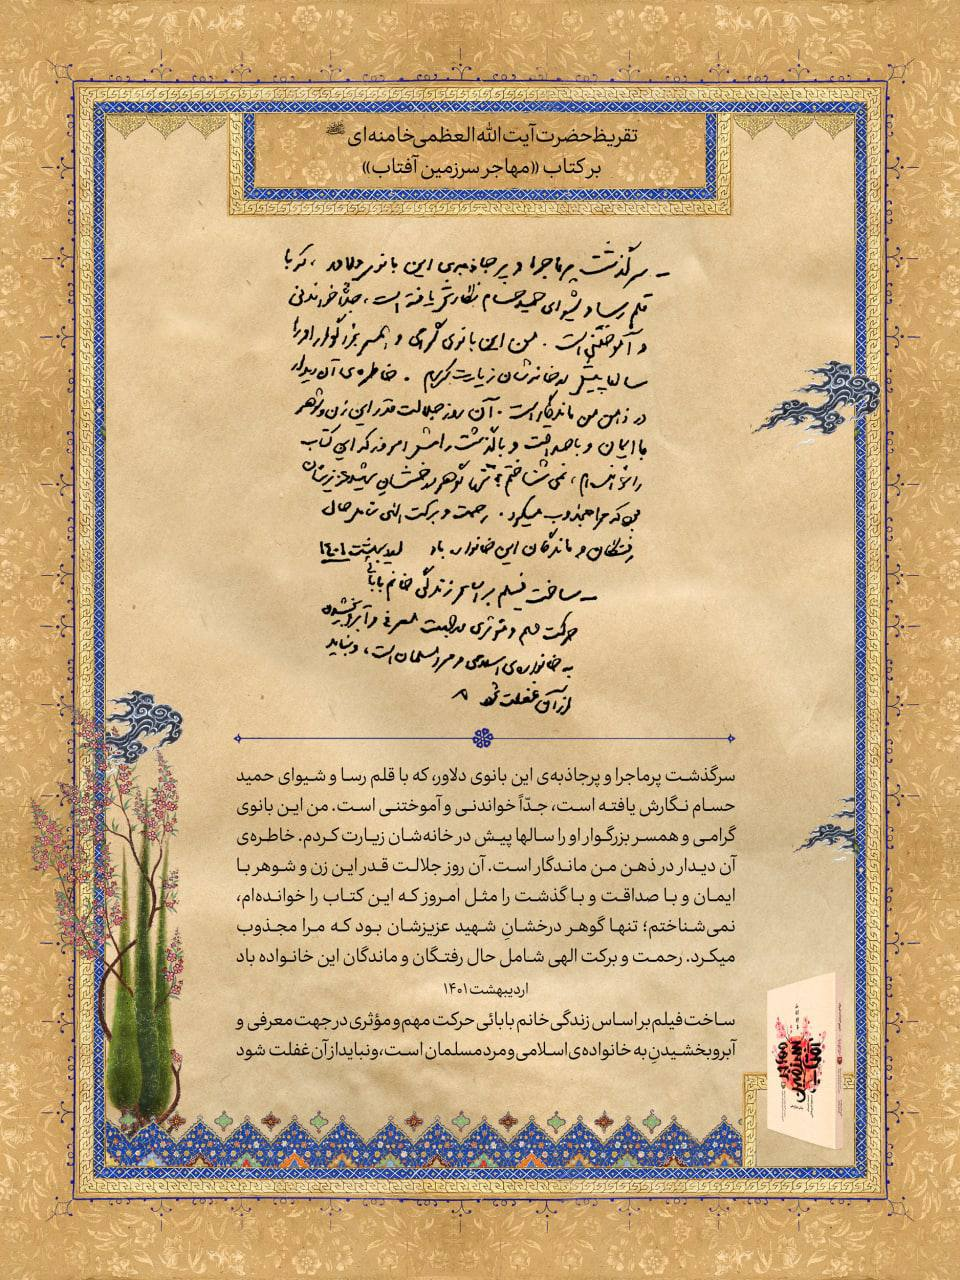 تقریظ حضرت آیت الله العظمی خامنه‌ای
بر کتاب «مهاجر سرزمین آفتاب»
ـ سرگذشت پرماجرا و پرجاذبه‌ی این بانوی دلاور، که با
قلم رسا و شیوای حمید حسام نگارش یافته است، جدّاً خواندنی
و آموختنی است. من این بانوی گرامی و همسر بزرگوار او را
سالها پیش در خانه‌شان زیارت کردم. خاطره‌ی آن دیدار
در ذهن من ماندگار است. آن روز جلالت قدر این زن و شوهر
با ایمان و با صداقت و با گذشت را مثل امروز که این کتاب
را خوانده‌ام، نمی‌شناختم؛ تنها گوهر درخشانِ شهید عزیزشان
بود که مرا مجذوب میکرد. رحمت و برکت الهی شامل حال
رفتگان و ماندگان این خانواده باد اردیبهشت ۱۴۰۱
ـ ساخت فیلم بر اساس زندگی خانم بابائی
حرکت مهم و مؤثری در جهت معرفی و آبرو بخشیدن
به خانواده‌ی اسلامی و مرد مسلمان است، و نباید
از آن غفلت شود
سرگذشت پرماجرا و پرجاذبه‌ی این بانوی دلاور، که با قلم رسا و شیوای حمید
حسام نگارش یافته است، جدّاً خواندنی و آموختنی است. من این بانوی
گرامی و همسر بزرگوار او را سالها پیش در خانه‌شان زیارت کردم. خاطره‌ی
آن دیدار در ذهن من ماندگار است. آن روز جلالت قدر این زن و شوهر با
ایمان و با صداقت و با گذشت را مثل امروز که این کتاب را خوانده‌ام،
نمی‌شناختم؛ تنها گوهر درخشانِ شهید عزیزشان بود که مرا مجذوب
میکرد. رحمت و برکت الهی شامل حال رفتگان و ماندگان این خانواده باد
اردیبهشت ۱۴۰۱
ساخت فیلم بر اساس زندگی خانم بابائی حرکت مهم و مؤثری در جهت معرفی و
آبرو بخشیدنِ به خانواده‌ی اسلامی و مرد مسلمان است، و نباید از آن غفلت شود